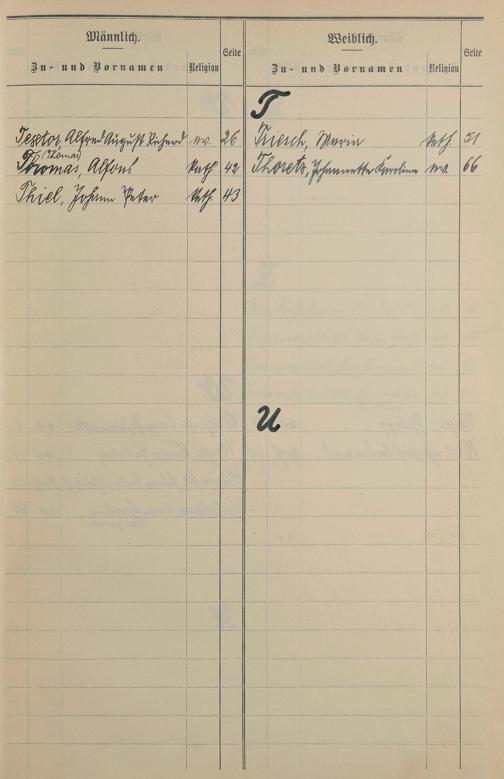 Männlich.
Zu- und Vornamen Religion Seite
Textor, Alfred August Richard ev. 26
(Thomas)
Thomas, Alfons kath. 42
Thiel, Johann Peter kath. 43
Weiblich.
Zu- und Vornamen Religion Seite
T
Triesch, Maria kath. 51
Thoretz, Johannette Karoline ev. 66
U